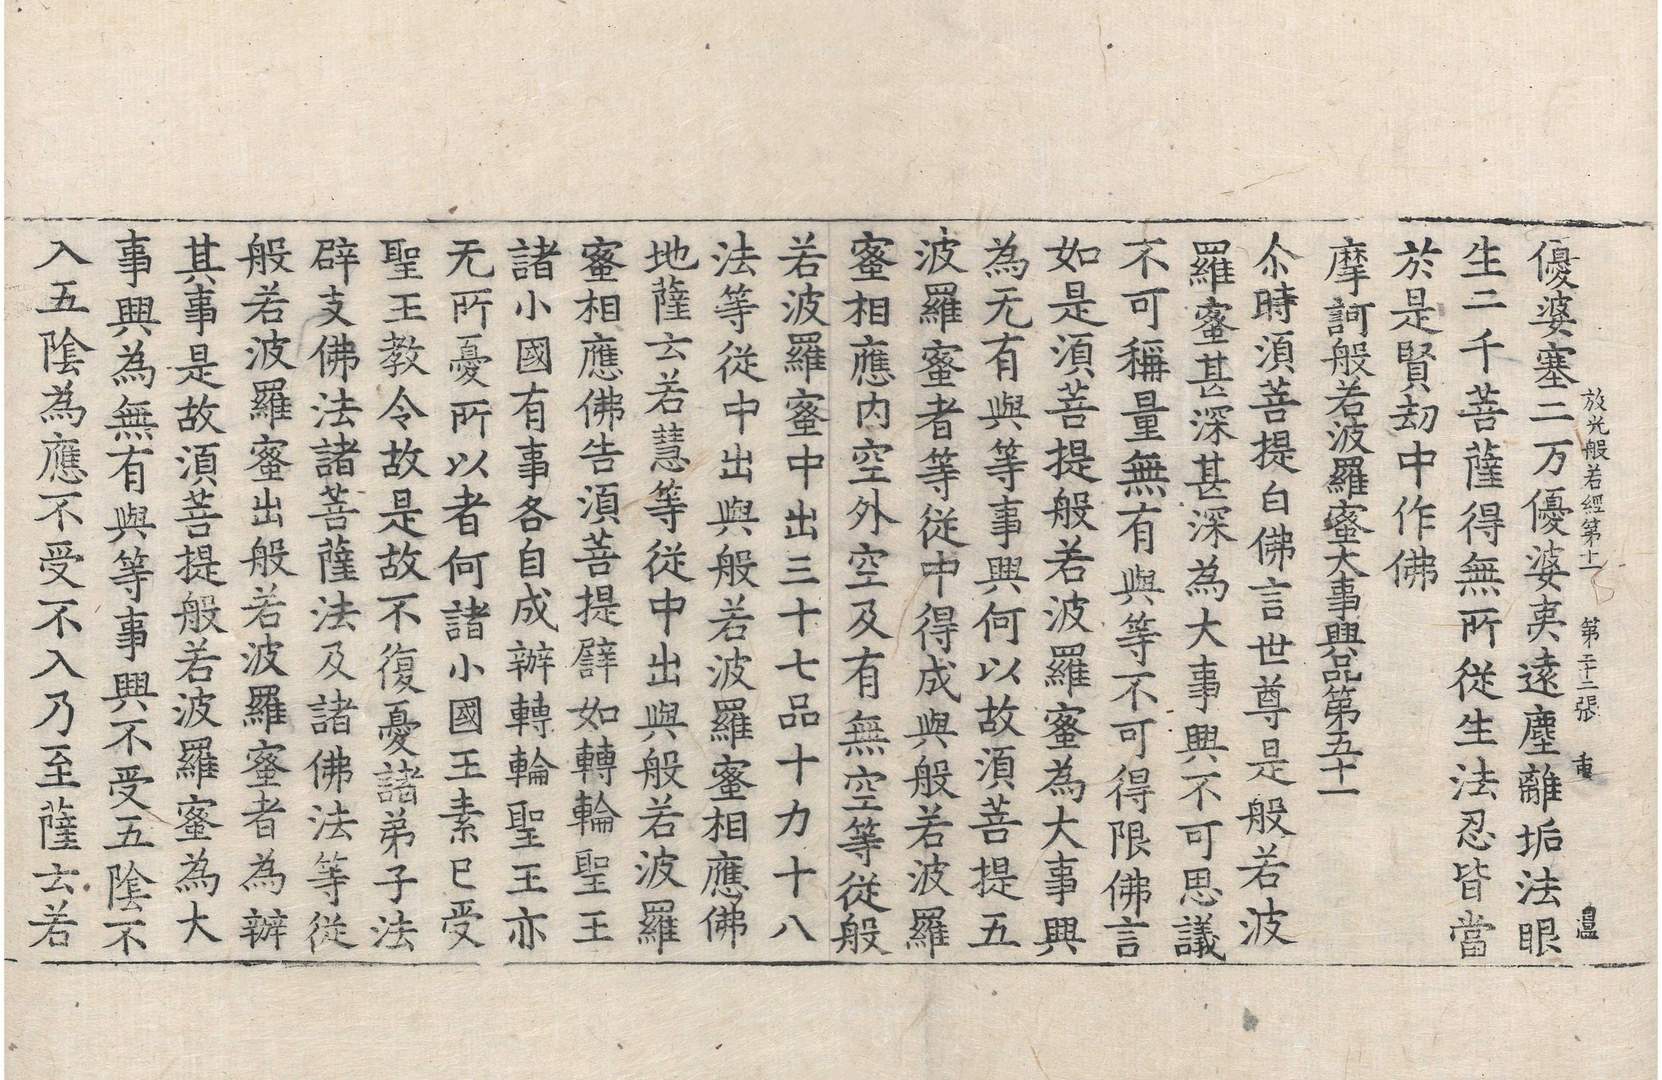 放光般若經第十一 第二十二張 重 温
優婆塞二万優婆夷遠塵離垢法眼
生二千菩薩得無所從生法忍皆當
於是賢劫中作佛
摩訶般若波羅蜜大事興品第五十一
尒時須菩提白佛言世尊是般若波
羅蜜甚深甚深為大事興不可思議
不可稱量無有與等不可得限佛言
如是須菩提般若波羅蜜為大事興
為无有與等事興何以故須菩提五
波羅蜜者等從中得成與般若波羅
蜜相應內空外空及有無空等從般
若波羅蜜中出三十七品十力十八
法等從中出與般若波羅蜜相應佛
地薩云若慧等從中出與般若波羅
蜜相應佛告須菩提譬如轉輪聖王
諸小國有事各自成辦轉輪聖王亦
无所憂所以者何諸小國王素已受
聖王教令故是故不復憂諸弟子法
辟支佛法諸菩薩法及諸佛法等從
般若波羅蜜出般若波羅蜜者為辦
其事是故須菩提般若波羅蜜為大
事興為無有與等事興不受五陰不
入五陰為應不受不入乃至薩云若